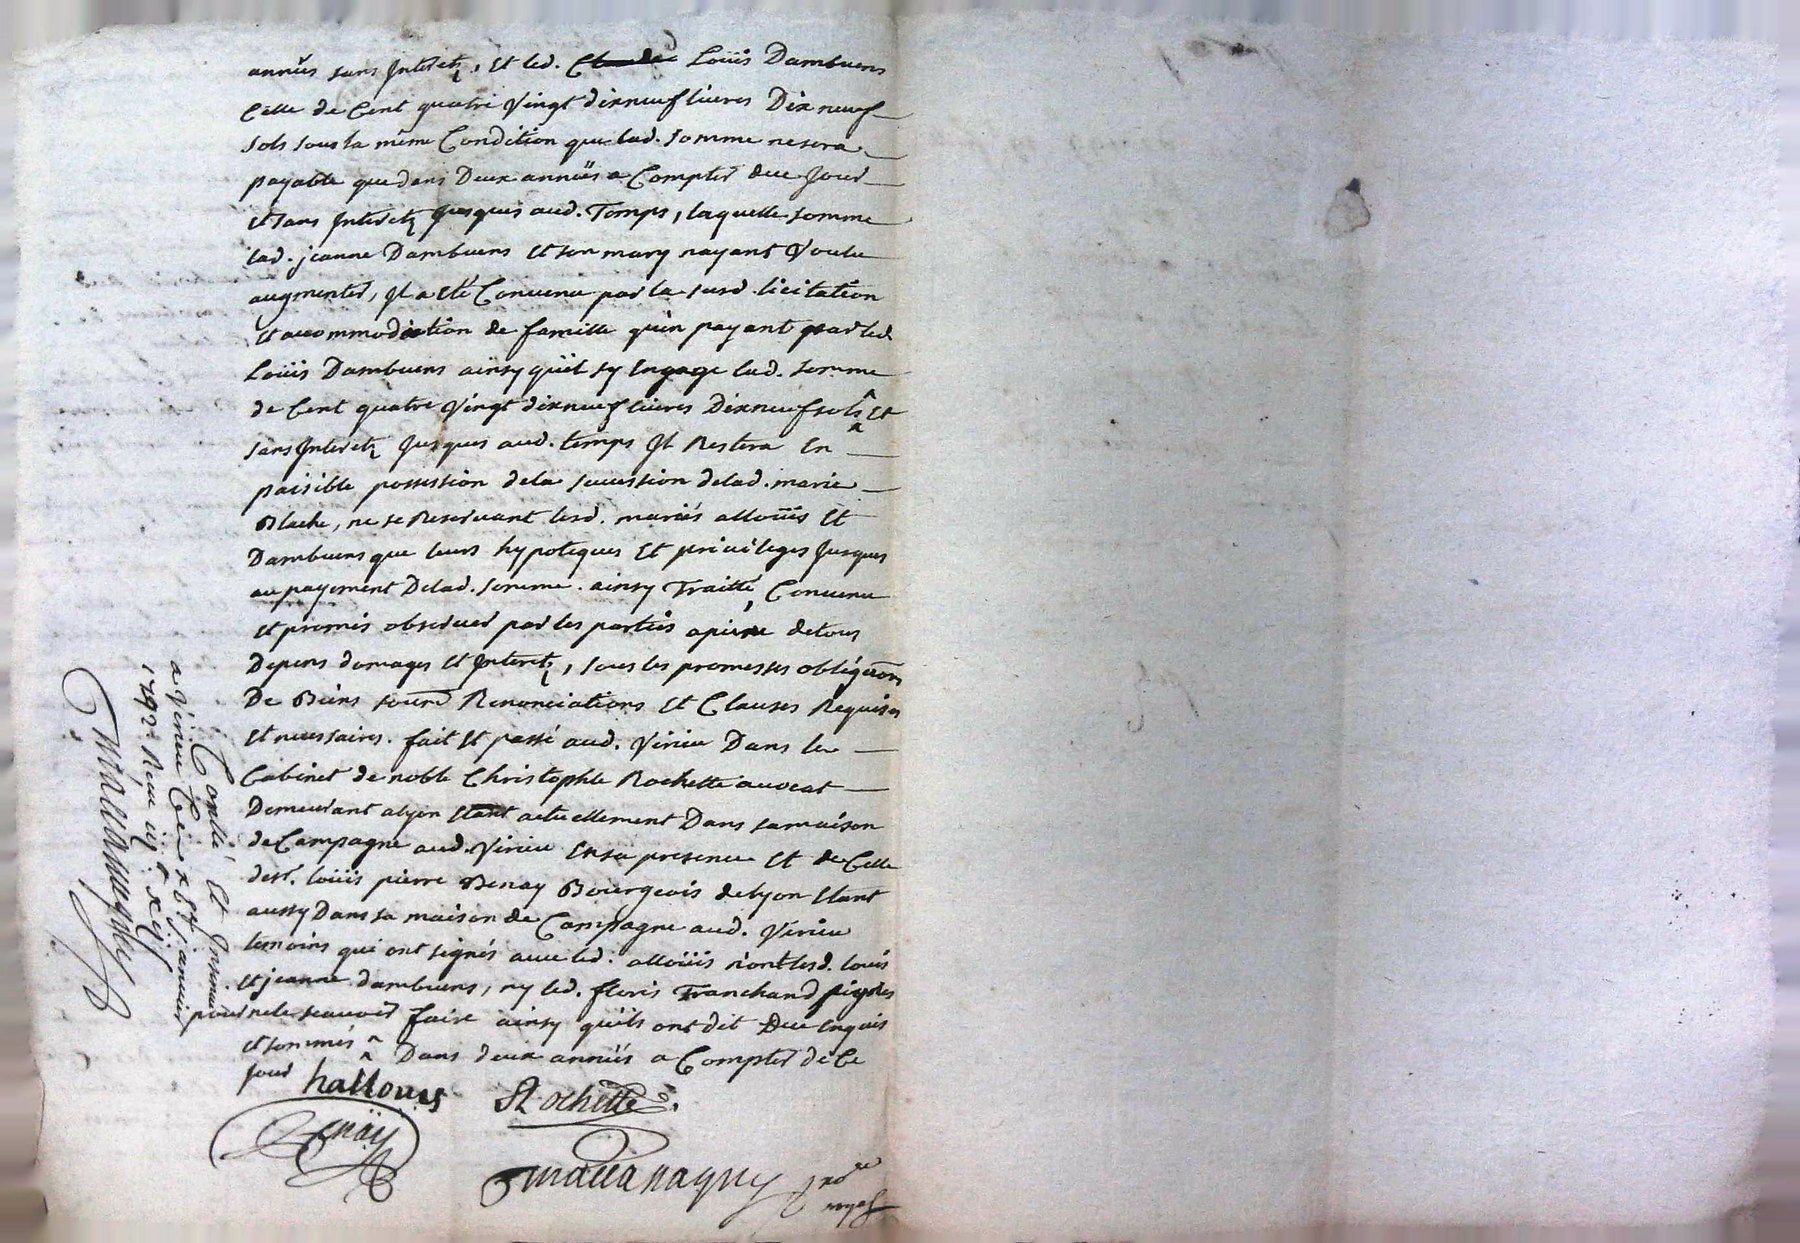 années sans Interetz, Et led. Claude Loüis Dambuens
Celle de Cent quatre Vingt dixneuf livres Dix neuf
sols sous la même Condition que lad. somme ne sera
payable que dans Deux années a Compter de ce Jour
et sans Interetz Jusques aud. Temps, laquelle somme
lad. jeanne Dambuens et son mary nayant Voulu
augmenter, Il a eté Convenu par la susd. licitation
et accommodiation de famille qu'en payant par led
Loüis Dambuens ainsy qu'il sy Engage lad. somme
de Cent quatre Vingt dixneuf livres Dixneuf sols ^ Et
sans Interetz Jusques aud. temps Il Restera En
paisible possession de la succession de lad. marie
Blache, ne se Reservant lesd. mariés alloüés Et
Dambuens que leurs hypoteques Et privileges Jusques
au payement De lad. somme. ainsy Traitté, Convenu
et promis observer par les parties a peine de tous
Depens domages et Interetz, sous les promesses obligãons
De Biens soum̃ Renonciations et Clauses Requises
et necessaires. fait et passé aud. Virieu Dans le
Cabinet de noble Christophle Rochette avocat
Demeurant a lyon etant actuellement Dans sa maison
de Campagne aud. Virieu En sa presence Et de Celle
de sr. loüis pierre Benay Bourgeois de lyon Etant
aussy Dans sa maison de Campagne aud. Virieu
temoins qui ont signés avec led. alloüés non lesd. louis
et jeanne dambuens, ny led. floris Tranchand
pour ne le scavoir faire ainsy qu'ils ont dit De ce enquis
et sommés ^ Dans deux années a Compter de Ce
Jour
halloues Rochette
Benaÿ
not.re
Conllé Et Insinué
a Virieu Ce janvier